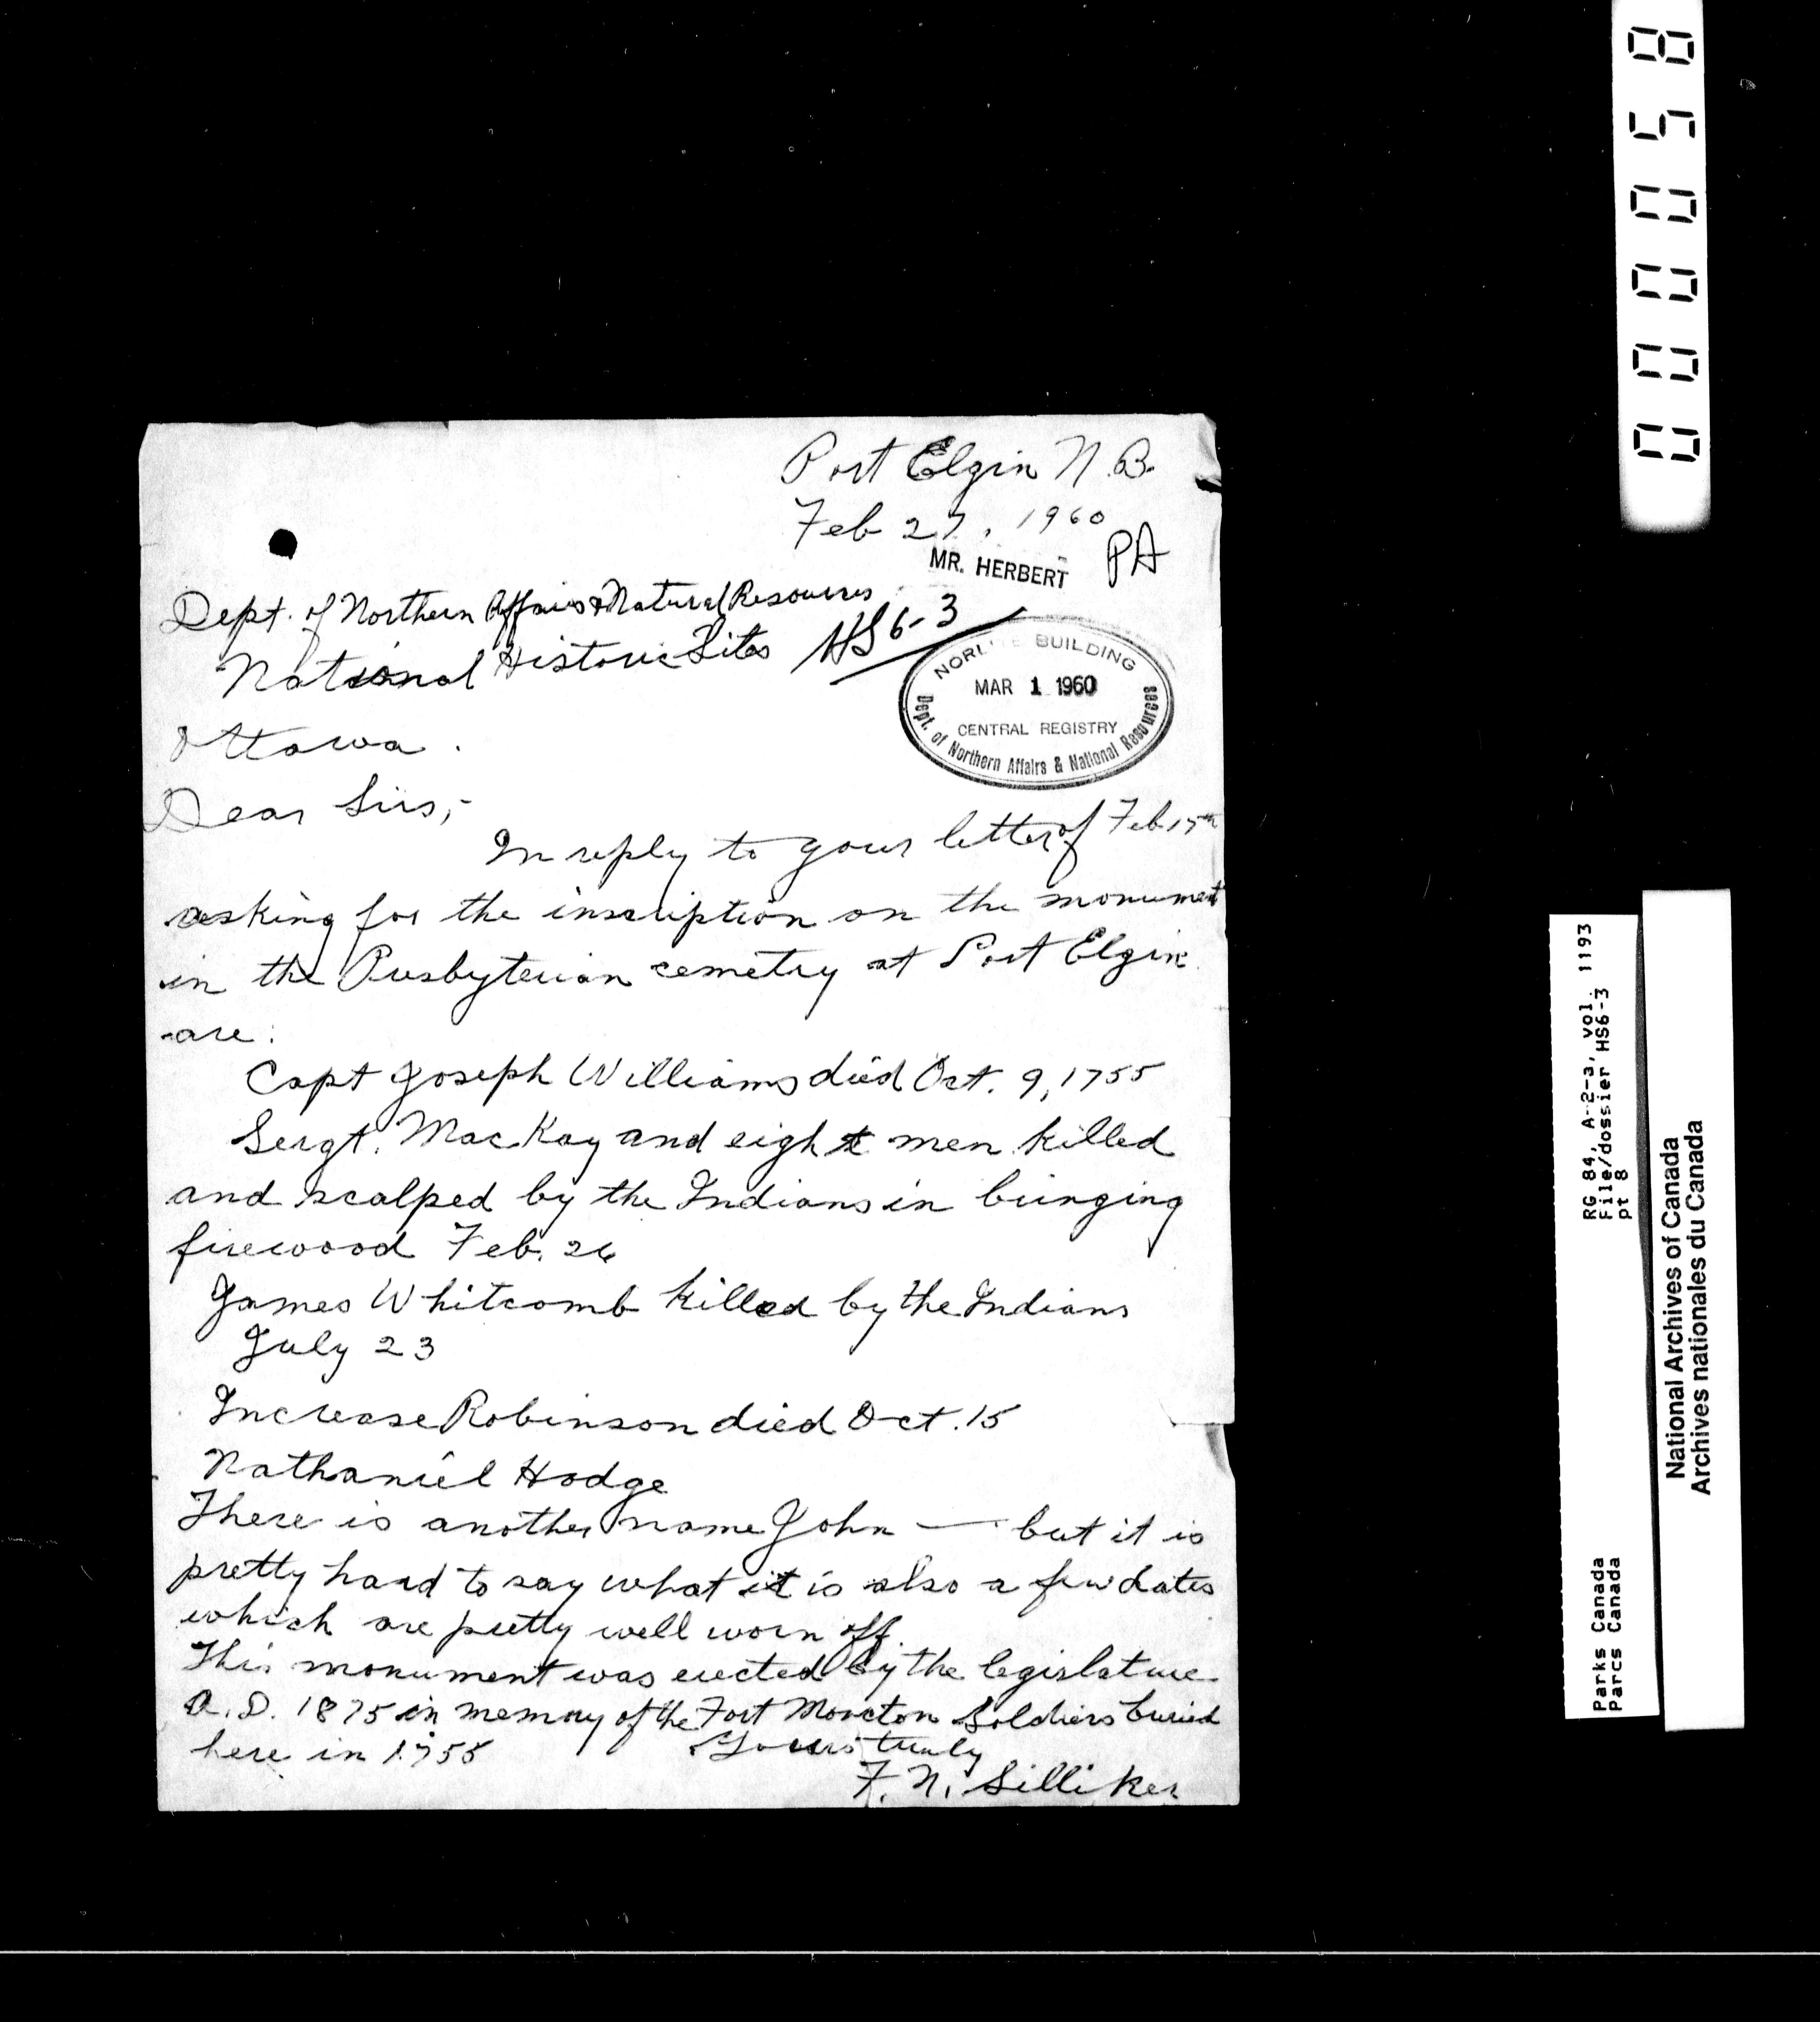 Port Elgin N.B.
Feb 27, 1960
MR. HERBERT PA
Dept. of Northern Affairs & Natural Resources
National Historic Sites HS6-3
NORLITE BUILDING
MAR 1 1960
CENTRAL REGISTRY
Dept. of Northern Affairs & National Resources
Ottawa.
Dear Sirs,-
In reply to your letter of Feb 15th
asking for the inscription on the monument
in the Presbyterian cemetry at Port Elgin
are:
Capt Joseph Williams died Oct. 9, 1755
Sergt. MacKay and eight men killed
and scalped by the Indians in bringing
firewood Feb. 26
James Whitcomb killed by the Indians
July 23
Increase Robinson died Oct. 15
Nathaniel Hodge
There is another name John — but it is
pretty hard to say what it is also a few dates
which are pretty well worn off.
This monument was erected by the legislature
A.D. 1875 in memory of the Fort Moncton Soldiers buried
here in 1755
Yours truly
F. N. Silliker
000058
RG 84, A-2-a, vol. 1193
File/dossier HS6-3
pt 8
Parks Canada
Parcs Canada
National Archives of Canada
Archives nationales du Canada